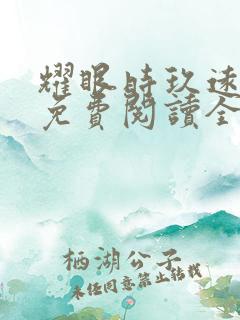 耀眼時玖遠
免費閱讀全
栖湖公子
未经同意禁止转载